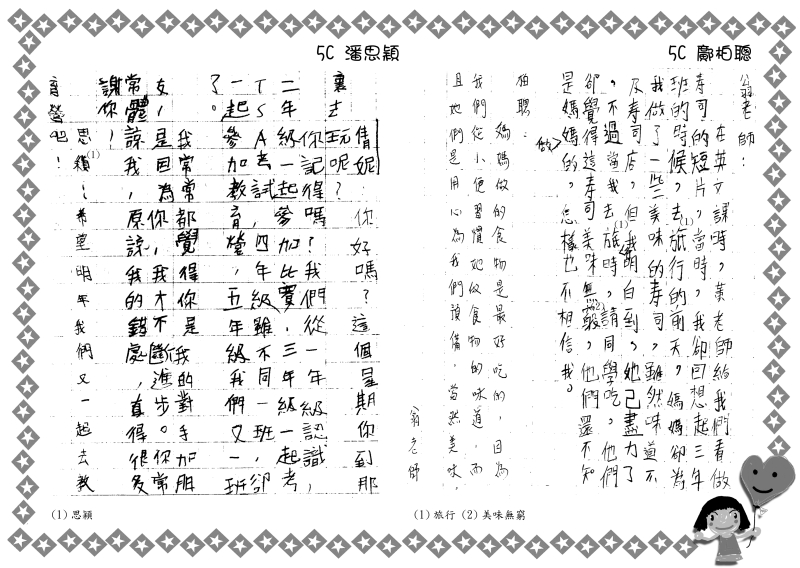 5C 鄺柏聰
翁老師：
在英文課時，黃老師給我們看做
寿司的短片，當時，我卻回想起三年
班的時候，去旅行的前天，媽媽卻為
我做了一些美味的寿司，雖然味道不
及寿司店，但我明白到，她已盡力了
，不過當我去旅(1)時，請同學吃。他們
卻覺得這寿司美味無(2)，他們還不知
是媽媽做的。怎樣也不相信我。
柏聰：
媽媽做的食物是最好吃的，因為
我們從小便習慣她做食物的味道，而
且她們是用心為我們預備，當然美味。
翁老師
(1) 旅行 (2) 美味無窮
5C 潘思穎
倩妮 你好嗎？這個星期你到那
裏去玩呢？
你記得嗎？我們從一年級認識，
二年級一起參加比賽，三年級一起考
TSA考試，四年級雖不同班，卻
一起參加教育營，五年級我們又一班
了。
我常常都覺得你是我的對手加朋
友，是因為你，我才不斷進步。你常
常體諒我，原諒我的錯處，真得很多
謝你！
思穎(1)：希望明年我們又一起去教
育營吧！
(1) 思穎